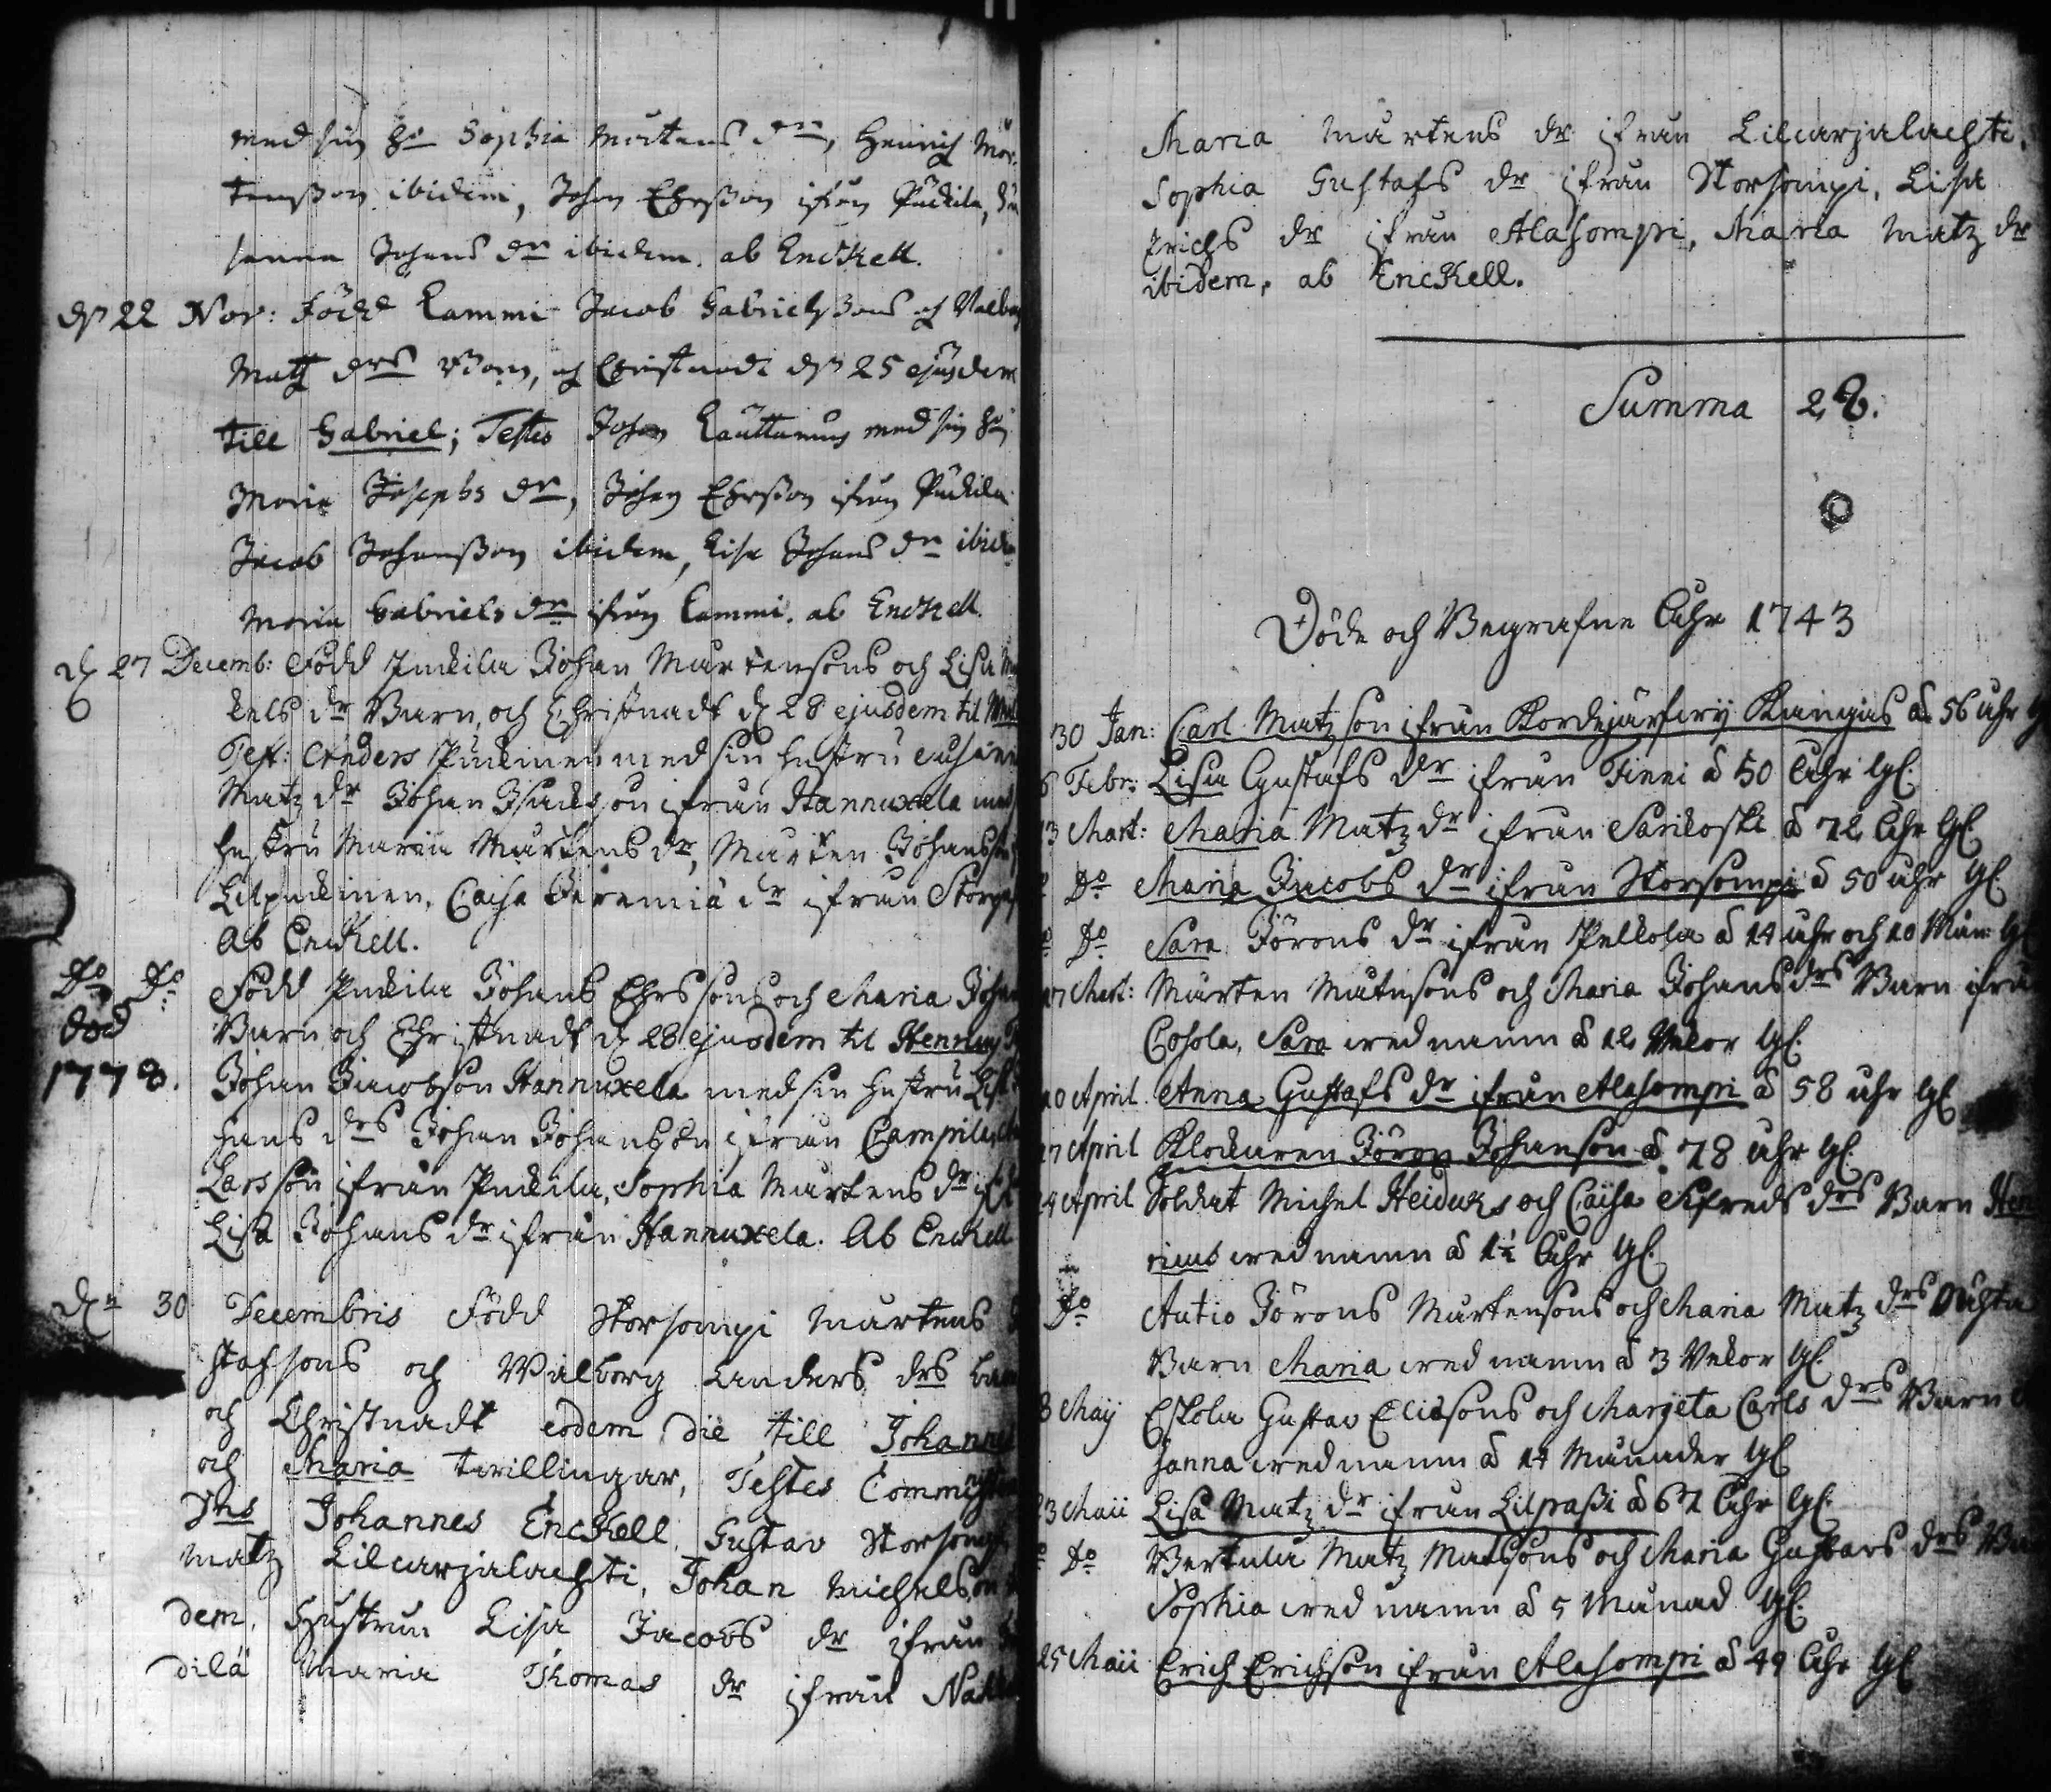 med sin ho Sophia Mårtens dr, Henrich Mår-
tensson ibidem, Johan Ehrsson ifrån Puckila, Su
sanna Johans dr ibidem. ab Enckell.
d 22 Nov: Född Lammi Jacob Gabrielssons och Valborg
Matz drs Barn, och Christnadt d 25 ejusdem
till Gabriel; Testes Johan med sin ho
Maria Josephs dr, Johan Ehrsson ifrån Puckila
Jacob Johansson ibidem, Lisa Johans dr ibid
Maria Gabriels dr ifrån Lammi. ab Enckell.
d 27 Decemb: Född Puckila Johan Mårtensons och Lisa
kels dr Barn, och Christnadt d 28 ejusdem til
Test: Anders Puckinen med sin hustru
Matz dr Johan Isacksson ifrån Hannuxela med
hustru Maria Mårtens dr, Mårten Johansson
Lilpuckinen, Caisa Jeremiä dr ifrån
Ab Enckell.
Do Do Född Puckila Johans Ehrssons och Maria Johan
död Barn och Christnadt d 28 ejusdem til Henricus
1778. Johan Jacobson Hannuxela med sin hustru Lisa
hans drs Johan Johansson ifrån
Larsson ifrån Puckila, Sophia Mårtens dr
Lisa Johans dr ifrån Hannuxela. Ab Enckell
Den 30 Decembris Född Storsompi Mårtens
stafsons och Walborg Anders drs barn
och Christnadt eodem die till Johannes
och Maria twillingar, Testes
Johannes Enckell, Gustav Storsompi
Matz Lilcarjalachti, Johan Michelsson
dem, Hustrun Lisa Jacobs dr ifrån
dilä Maria Thomas dr ifrån
Maria Mårtens dr ifrån Lilcarjalachti,
Sophia Gustafs dr ifrån Storsompi, Lisa
Erichs dr ifrån Alasompi, Maria Matz dr
ibidem, ab Enckell.
Summa 28.
Döde och Begrafne Åhr 1743
30 Jan: Carl Matzson ifrån Kordejärfwij Kangas å 56 åhr
Febr: Lisa Gustafs dr ifrån Finni å 50 Åhr lgl.
13 Mart: Maria Matz dr ifrån Sarikoski å 72 Åhr lgl.
Do Maria Jacobs dr ifrån Storsompi å 50 åhr lgl
Do Sara Jörons dr ifrån Pelkola å 14 åhr och 10 Mån: lgl
27 Mart: Mårten Matzsons och Maria Johans drs Barn ifrån
Cohola, Sara wed namn å 12 Wekor lgl.
10 April. Anna Gustafs dr ifrån Alasompi å 58 åhr lgl
17 April Klockaren Jöron Johanson å. 78 åhr lgl.
24 April Soldat Michel Heiduks och Caisa Sifreds drs Barn Hen
ricus wed namn å 1½ Åhr lgl.
Do Autio Jörons Mårtensons och Maria Matz drs
Barn Maria wed namn å 3 Wekor lgl.
8 Maij Eskola Gustav Eliæsons och Margeta Carls drs Barn
hanna wed namn å 14 Månader lgl
13 Maii Lisa Matz dr ifrån Lilpaßi å 67 Åhr lgl.
Do Wertula Matz Matssons och Maria Gustavs drs Ba
Sophia wed namn å 5 Månad lgl.
25 Maii Erich Erichsson ifrån Alasompi å 49 Åhr lgl